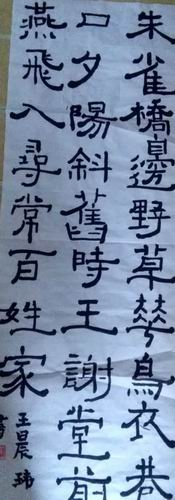 朱雀橋邊野草蕐鳥衣巷
口夕陽斜舊時王謝堂前
燕飛入尋常百姓家
王晨玮書